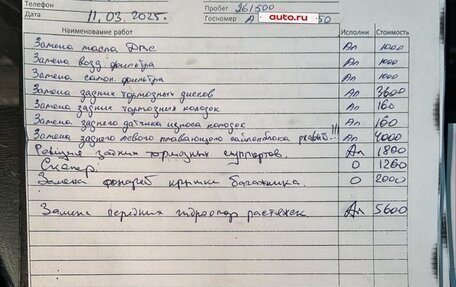 Телефон
Пробег 261500
Дата 11.03.2025. Госномер А auto.ru 50
Наименование работ Исполни Стоимость
Замена масла ДВС Ал 1000
Замена возд. фильтра Ал 1000
Замена салон. фильтра Ал 1000
Замена задних тормозных дисков Ал 3600
Замена задних тормозных колодок Ал 160
Замена заднего датчика износа колодок Ал 160
Замена заднего левого плавающего сайлентблока !!! Ал 4000
Ревизия задних тормозных суппортов. Ал 1800
Сканер. О 1260
Замена фонарей крышки багажника. О 2000
Замена передних гидроопор растяжек Ал 5600